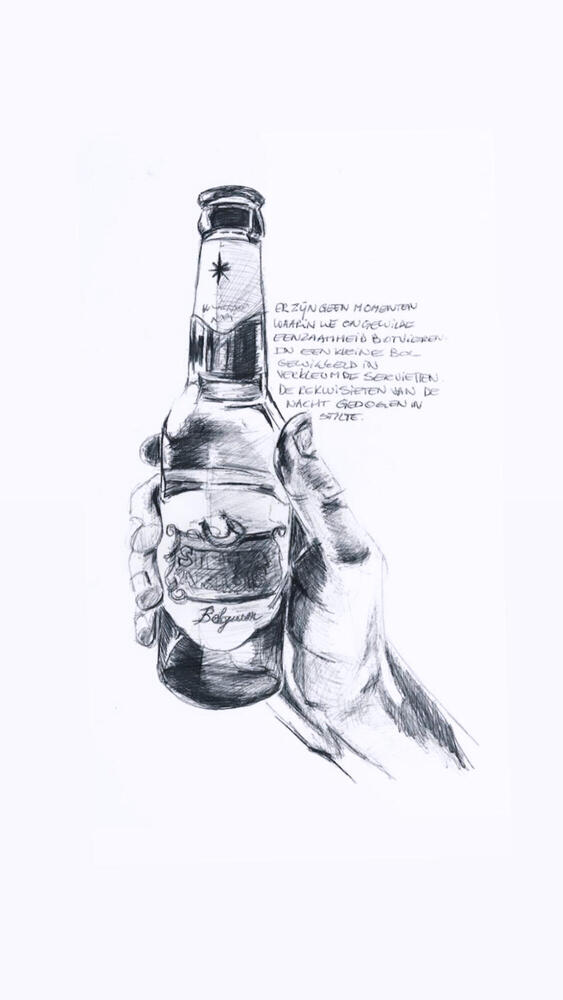 ER ZIJN GEEN MOMENTEN
WAARIN WE ONGEWILDE
EENZAAMHEID BOTVIEREN.
IN EEN KLEINE BOL
GEWIKKELD IN
VERKLEUMDE SERVIETTEN.
DE REKWISIETEN VAN DE
NACHT GEDOGEN IN
STILTE.
Belgium